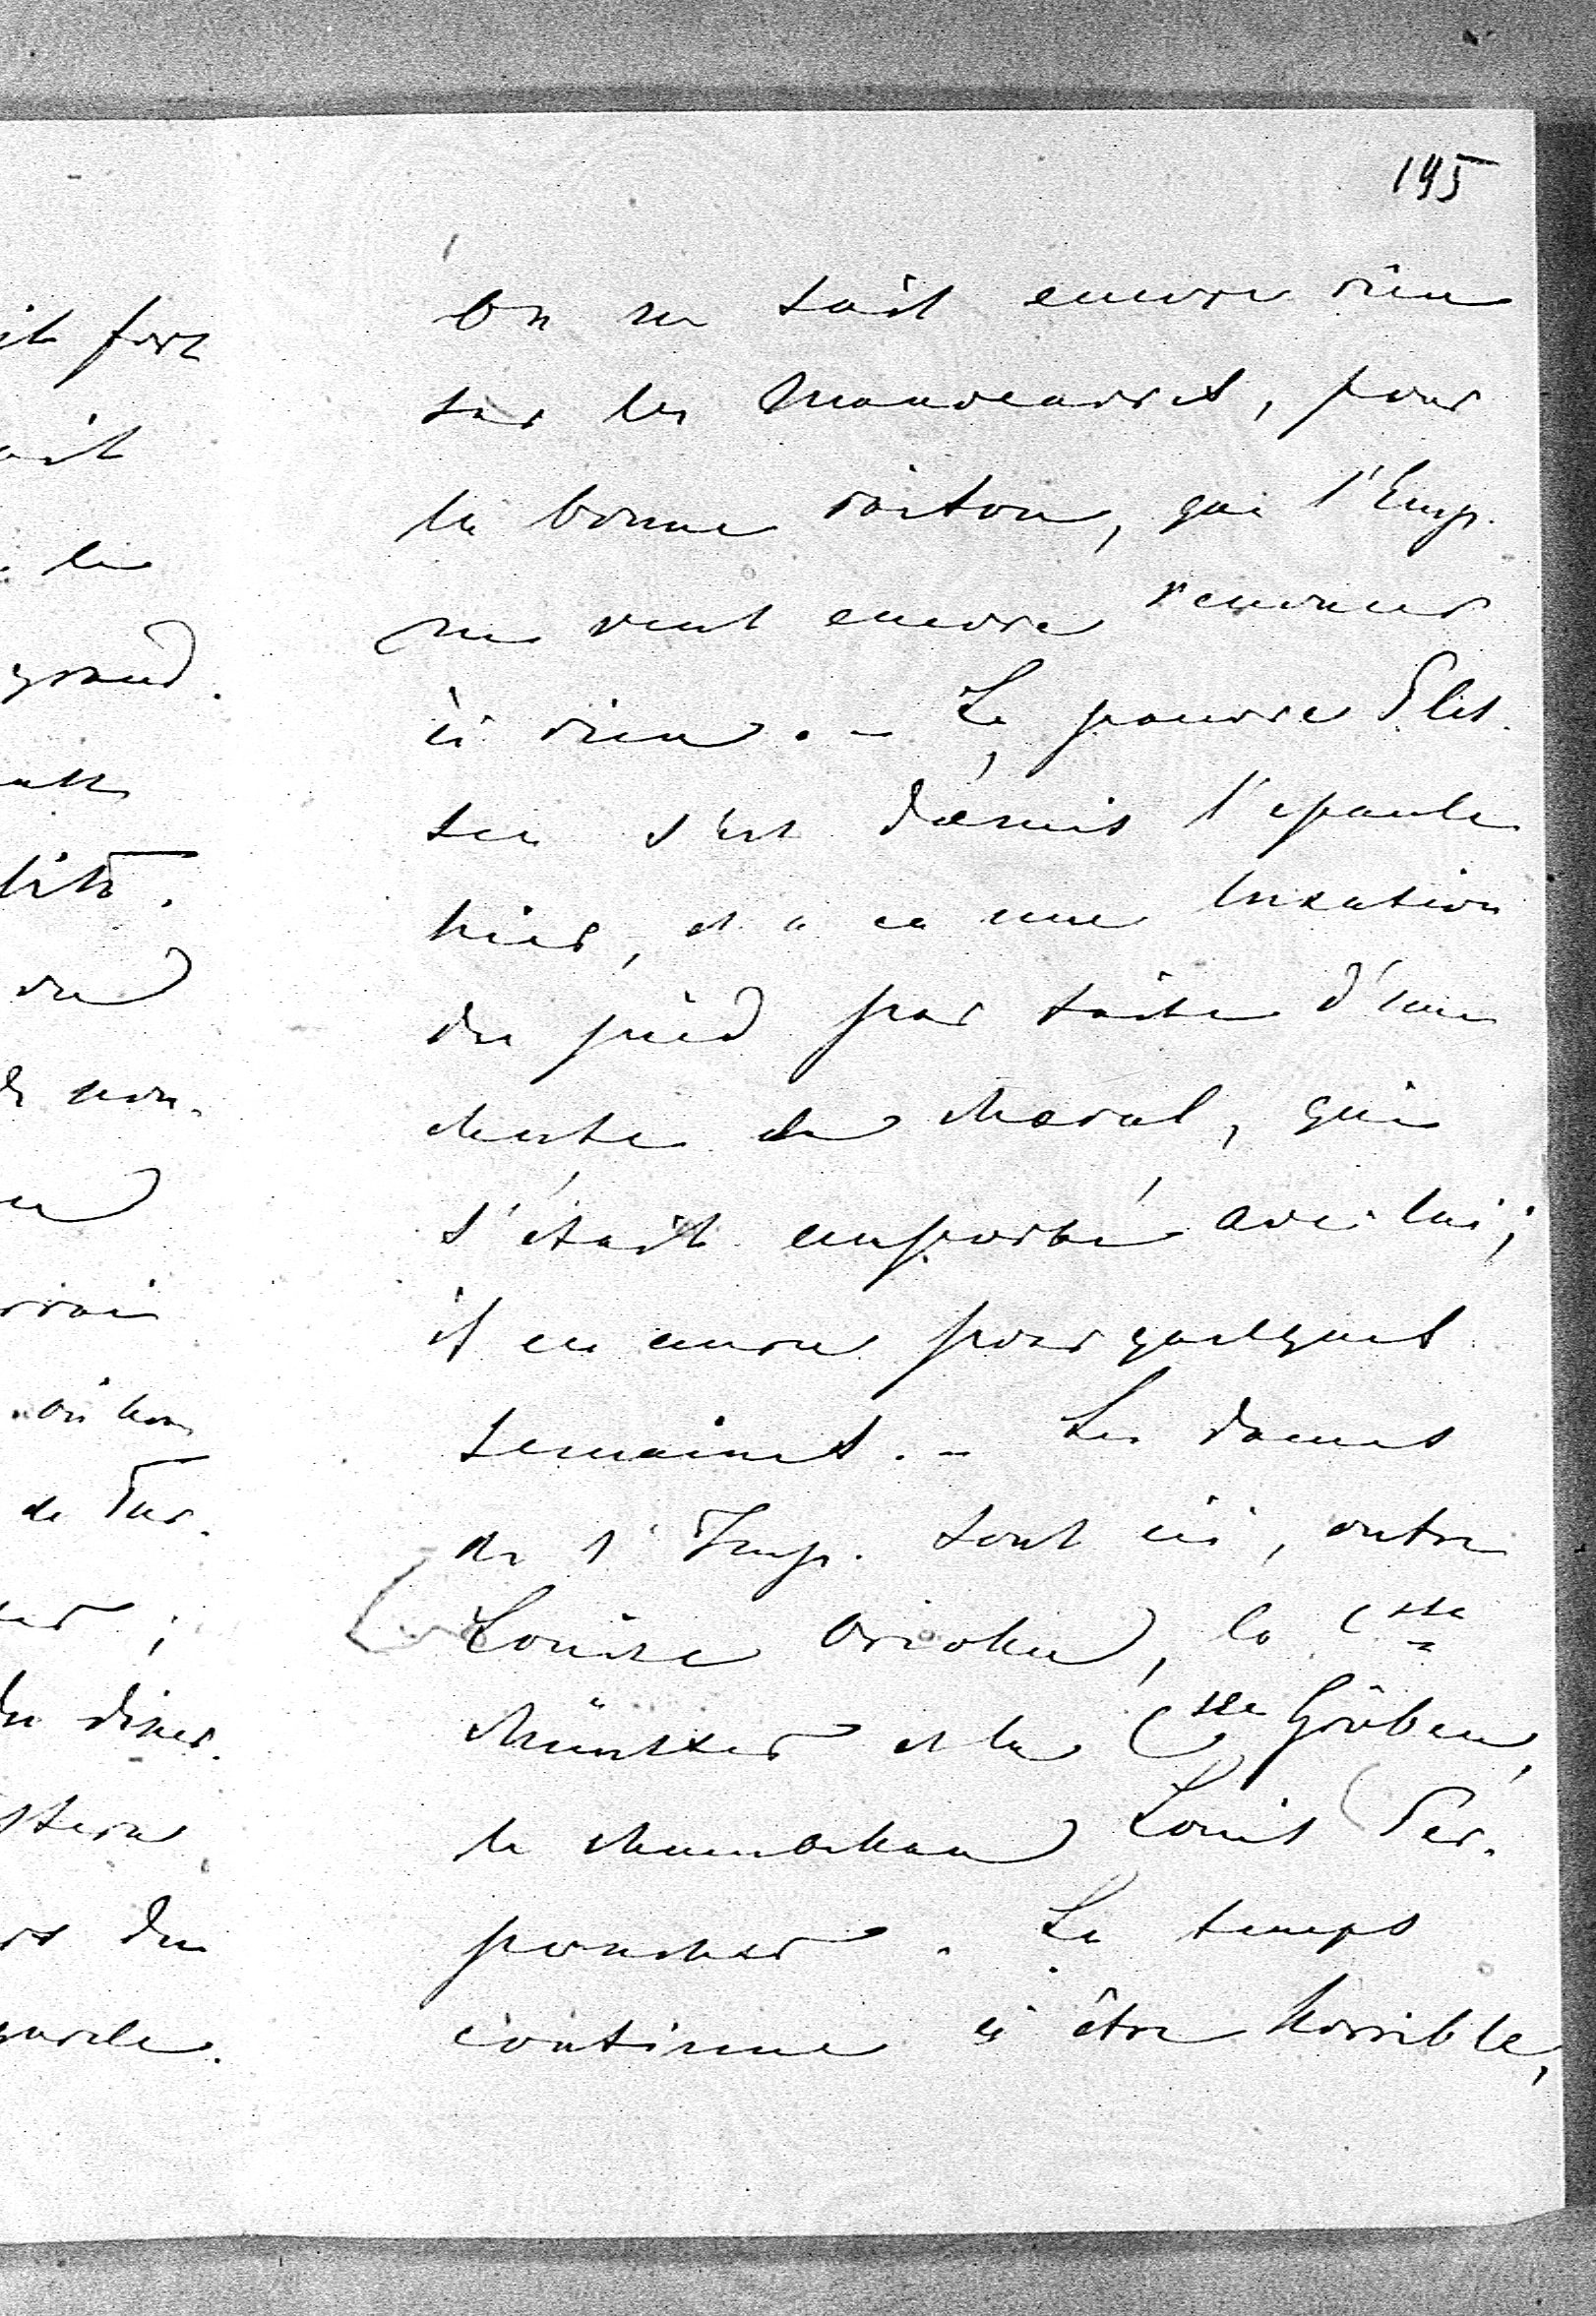 195
On ne sait encore rien
sur les manoeuvres, pour
la bonne raison, que l'Emp.
ne veut encore renoncer
à rien. - Le pauvre Ples-
sen s'est démis l'epaule
hier, et a eu une luxation
du pied par suite d'une
chute de cheval, qui
s'était emporté avec lui;
il en aura pour quelques
semaines. - Les dames
de l'Imp. sont ici, outre
Louise, la Csse
Münster et la Csse Gröben,
le chambellan Louis Per-
poncher. Le temps
continue à être horrible,
it fort
ait
grand.
lité.
de non-
de Tur-
du diner.